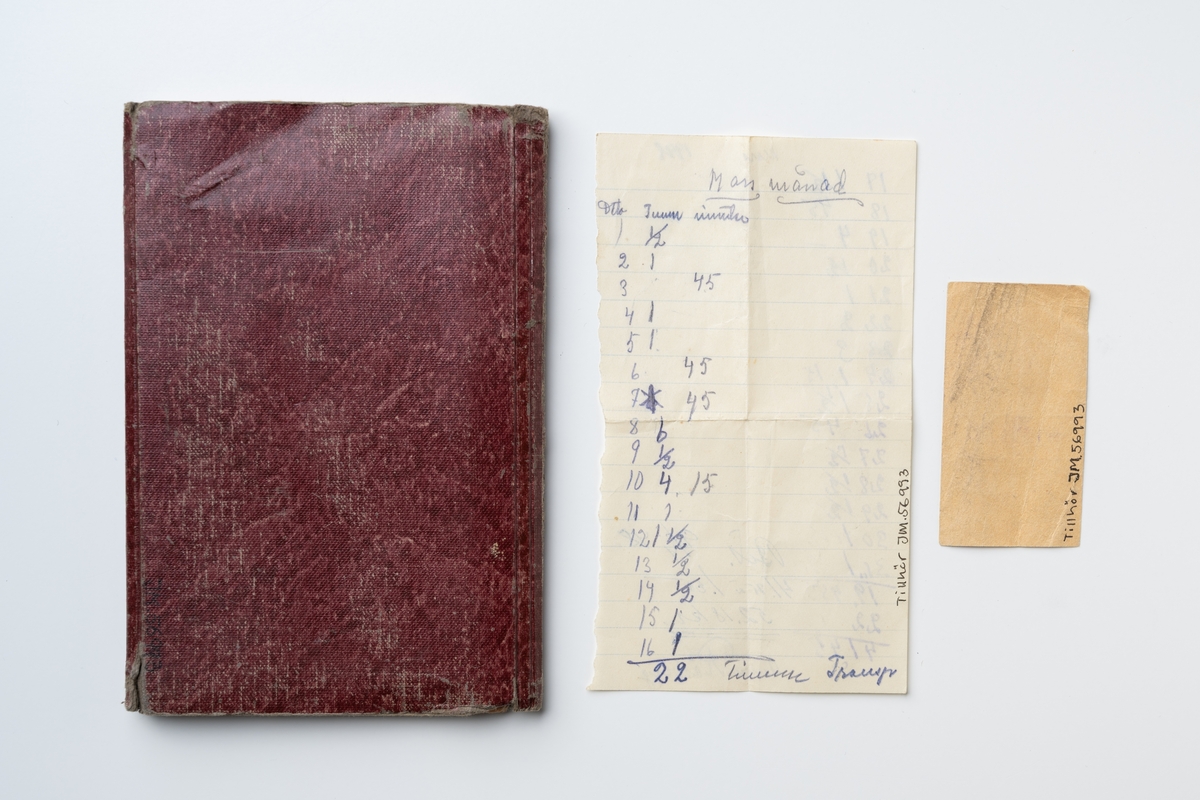 Mars månad
Dto Timm minuter
1 1/2
2 1
3 45
4 1
5 1
6 45
7 45
8 6
9 1/2
10 4 15
11 1
12 1 1/2
13 1/2
14 1/2
15 1
16 1
22 Transp
Tillhör JM.56993
Tillhör JM.56993